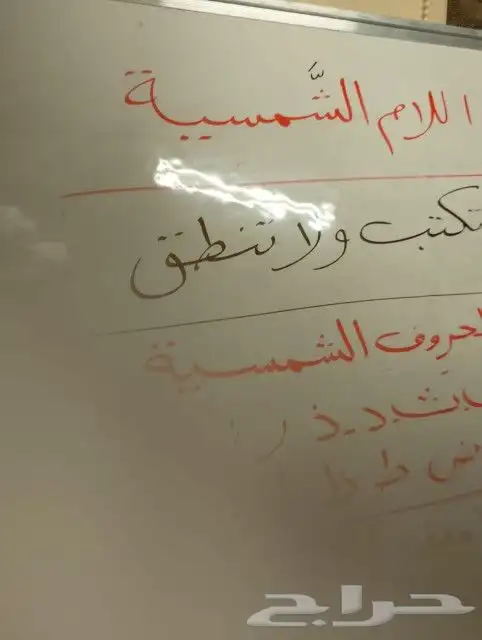 اللام الشَّمسية
تكتب ولا تنطق
الحروف الشمسية
ت ث د ذ ر
ض ط ظ
حراج